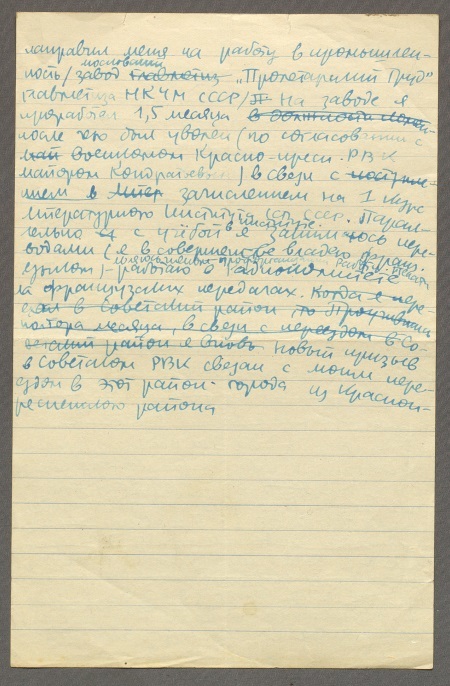 направил меня на работу в промышлен-
московский
ность/завод главметиз „Пролетарский Труд“
Главметиза НКЧМ СССР/ На заводе я
проработал 1,5 месяца в должности
после чего был уволен (по согласовании с
военкомом Красно-пресн. РВК
майором Кондратьевым) в связи с поступле-
нием в Литер зачислением на I курс
Литературного Института ССП СССР. Парал-
в институте
лельно с учёбой я занимаюсь пере-
водами (я в совершенстве владею франц.
языком) – работаю в Радиокомитете
на французских передачах. Когда я пере-
ехал в Советский район то Проживши
полтора месяца, в связи с переездом в Со-
ветский район я вновь Новый призыв
в Советском РВК связан с моим пере-
ездом в этот район города из Красноп-
ресненского района